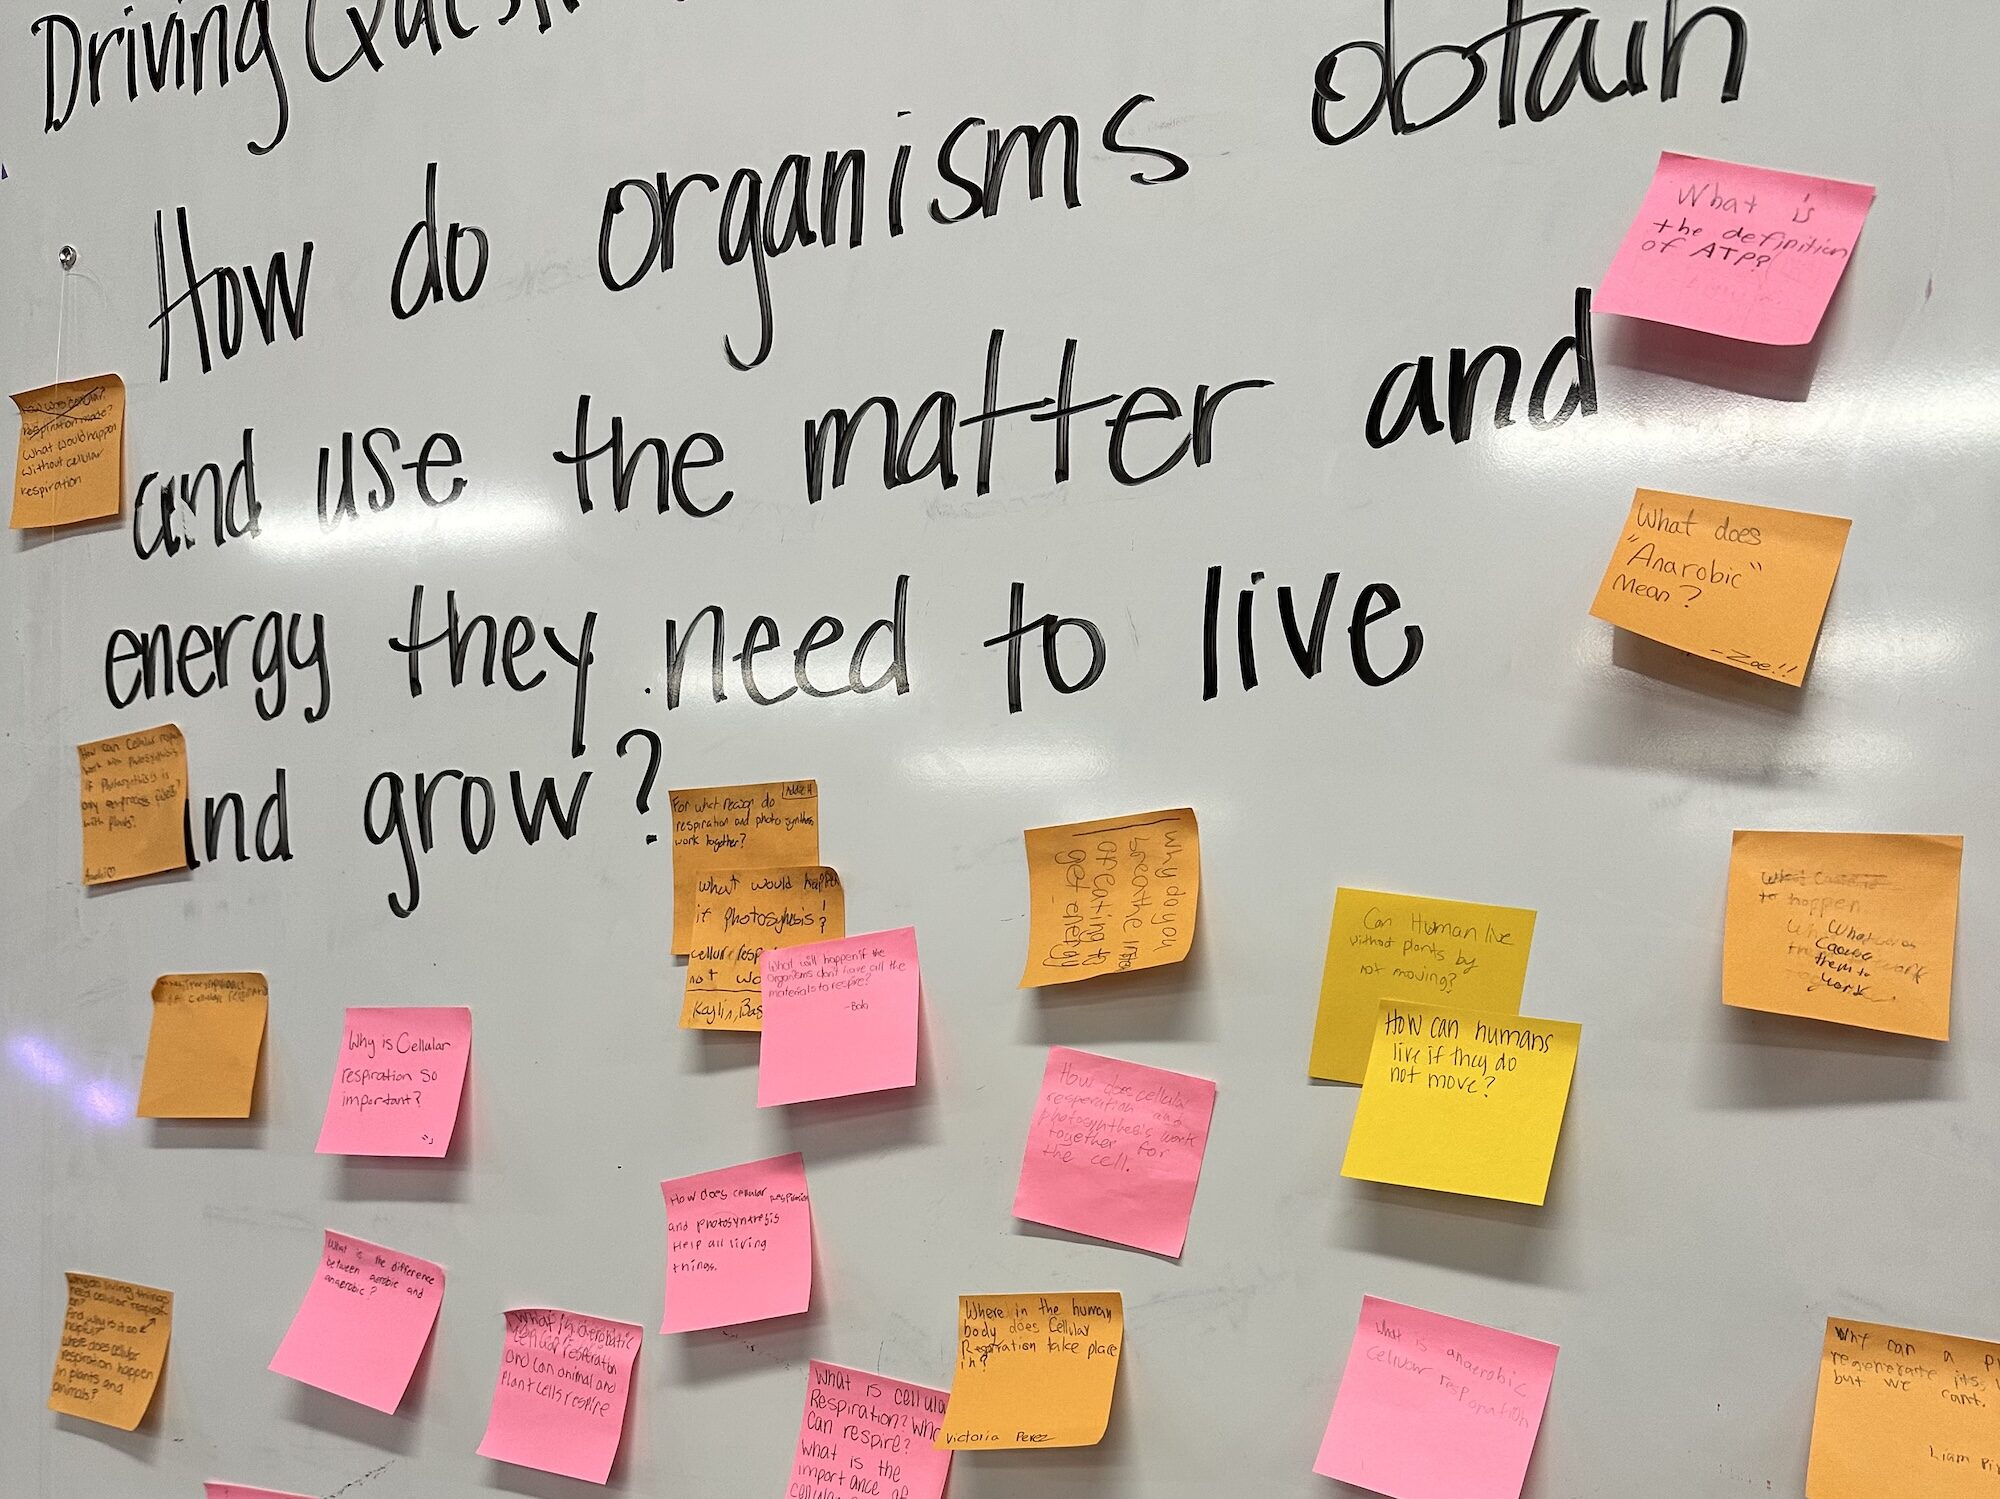 Driving
How do organisms obtain
and use the matter and
energy they need to live
and grow?
What is
the definition
of ATP?
Respiration made?
What would happen
without cellular
respiration
What does
"Anarobic"
mean?
-Zoe!!
How can Cellular
work with
if is
only
with plants?
For what reason do
respiration and photo synthesis
work together?
Addie H
what would happen
if
not
Kaylin,
What will happen if the
organisms don't have all the
materials to respire?
Why do you
breathe
or eating to
get energy
Can Human live
without plants by
not moving?
How can humans
live if they do
not move?
to happen
What
Cause
them to
work
Cellular
Why is Cellular
respiration so
important?
How does cellular
resperation and
photosynthesis work
together for
the cell.
How does cellular
and
Help all living
things.
What is the difference
between aerobic and
anaerobic?
Why do living things
need cellular
And why is it so
helpful?
where does cellular
respiration happen
in plants and
animals?
What is
respiration
and can animal and
Plant cells respire
Where in the human
body does Cellular
Respiration take place
in?
Victoria Perez
What is
Respiration?
Can respire?
What is the
importance of
What is anaerobic
cellular respiration
Why can a
regenerate
but we cant.
Liam